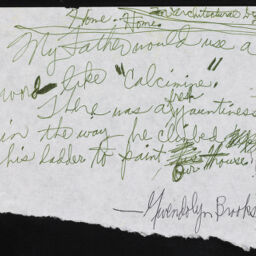 Home: Home.
My Father would use a
word like "Calcimine."
fresh
There was a jauntiness
in the way he climbed
his ladder to paint
our House!
—Gwendolyn Brooks